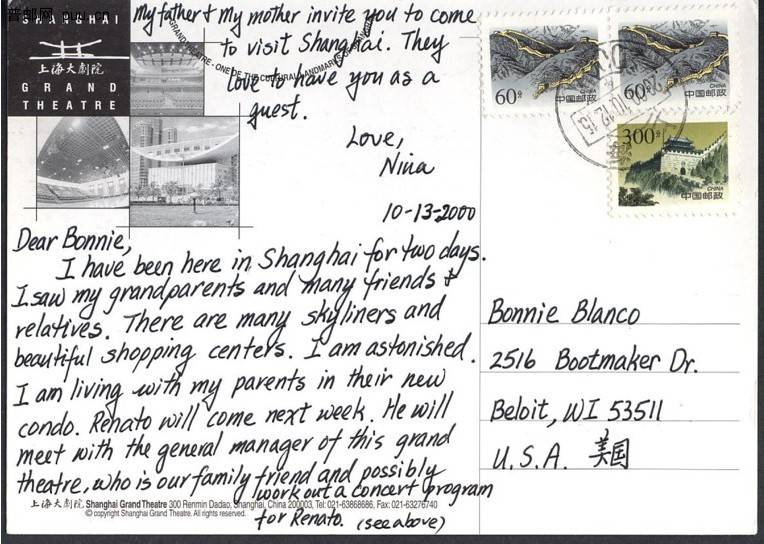 普邮网 ouu.cn
SHANGHAI
上海大剧院
GRAND
THEATRE
GRAND THEATRE - ONE OF THE CULTURAL LANDMARKS
10-13-2000
Dear Bonnie,
I have been here in Shanghai for two days.
I saw my grandparents and many friends &
relatives. There are many skyliners and
beautiful shopping centers. I am astonished.
I am living with my parents in their new
condo. Renato will come next week. He will
meet with the general manager of this grand
theatre, who is our family friend and possibly
work out a concert program
for Renato. (see above)
My father & my mother invite you to come
to visit Shanghai. They
love to have you as a
guest.
Love,
Nina
上海大剧院 Shanghai Grand Theatre 300 Renmin Dadao, Shanghai, China 200003, Tel: 021-63868686, Fax: 021-63276740
© copyright Shanghai Grand Theatre. All rights reserved.
60分
CHINA
中国邮政
60分
CHINA
中国邮政
300分
CHINA
中国邮政
Bonnie Blanco
2516 Bootmaker Dr.
Beloit, WI 53511
U.S.A. 美国